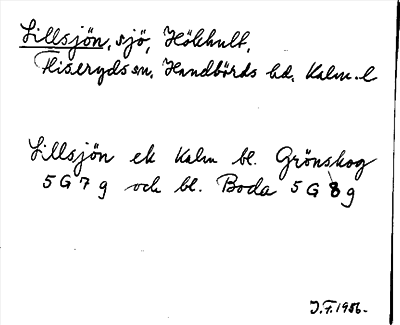 Lillsjön, sjö, Hökhult,
Fliseryds sn, Handbörds hd, Kalm. l
Lillsjön ek Kalm bl. Grönskog
5 G 7 g och bl. Boda 5 G 8 g
J.F. 1986.